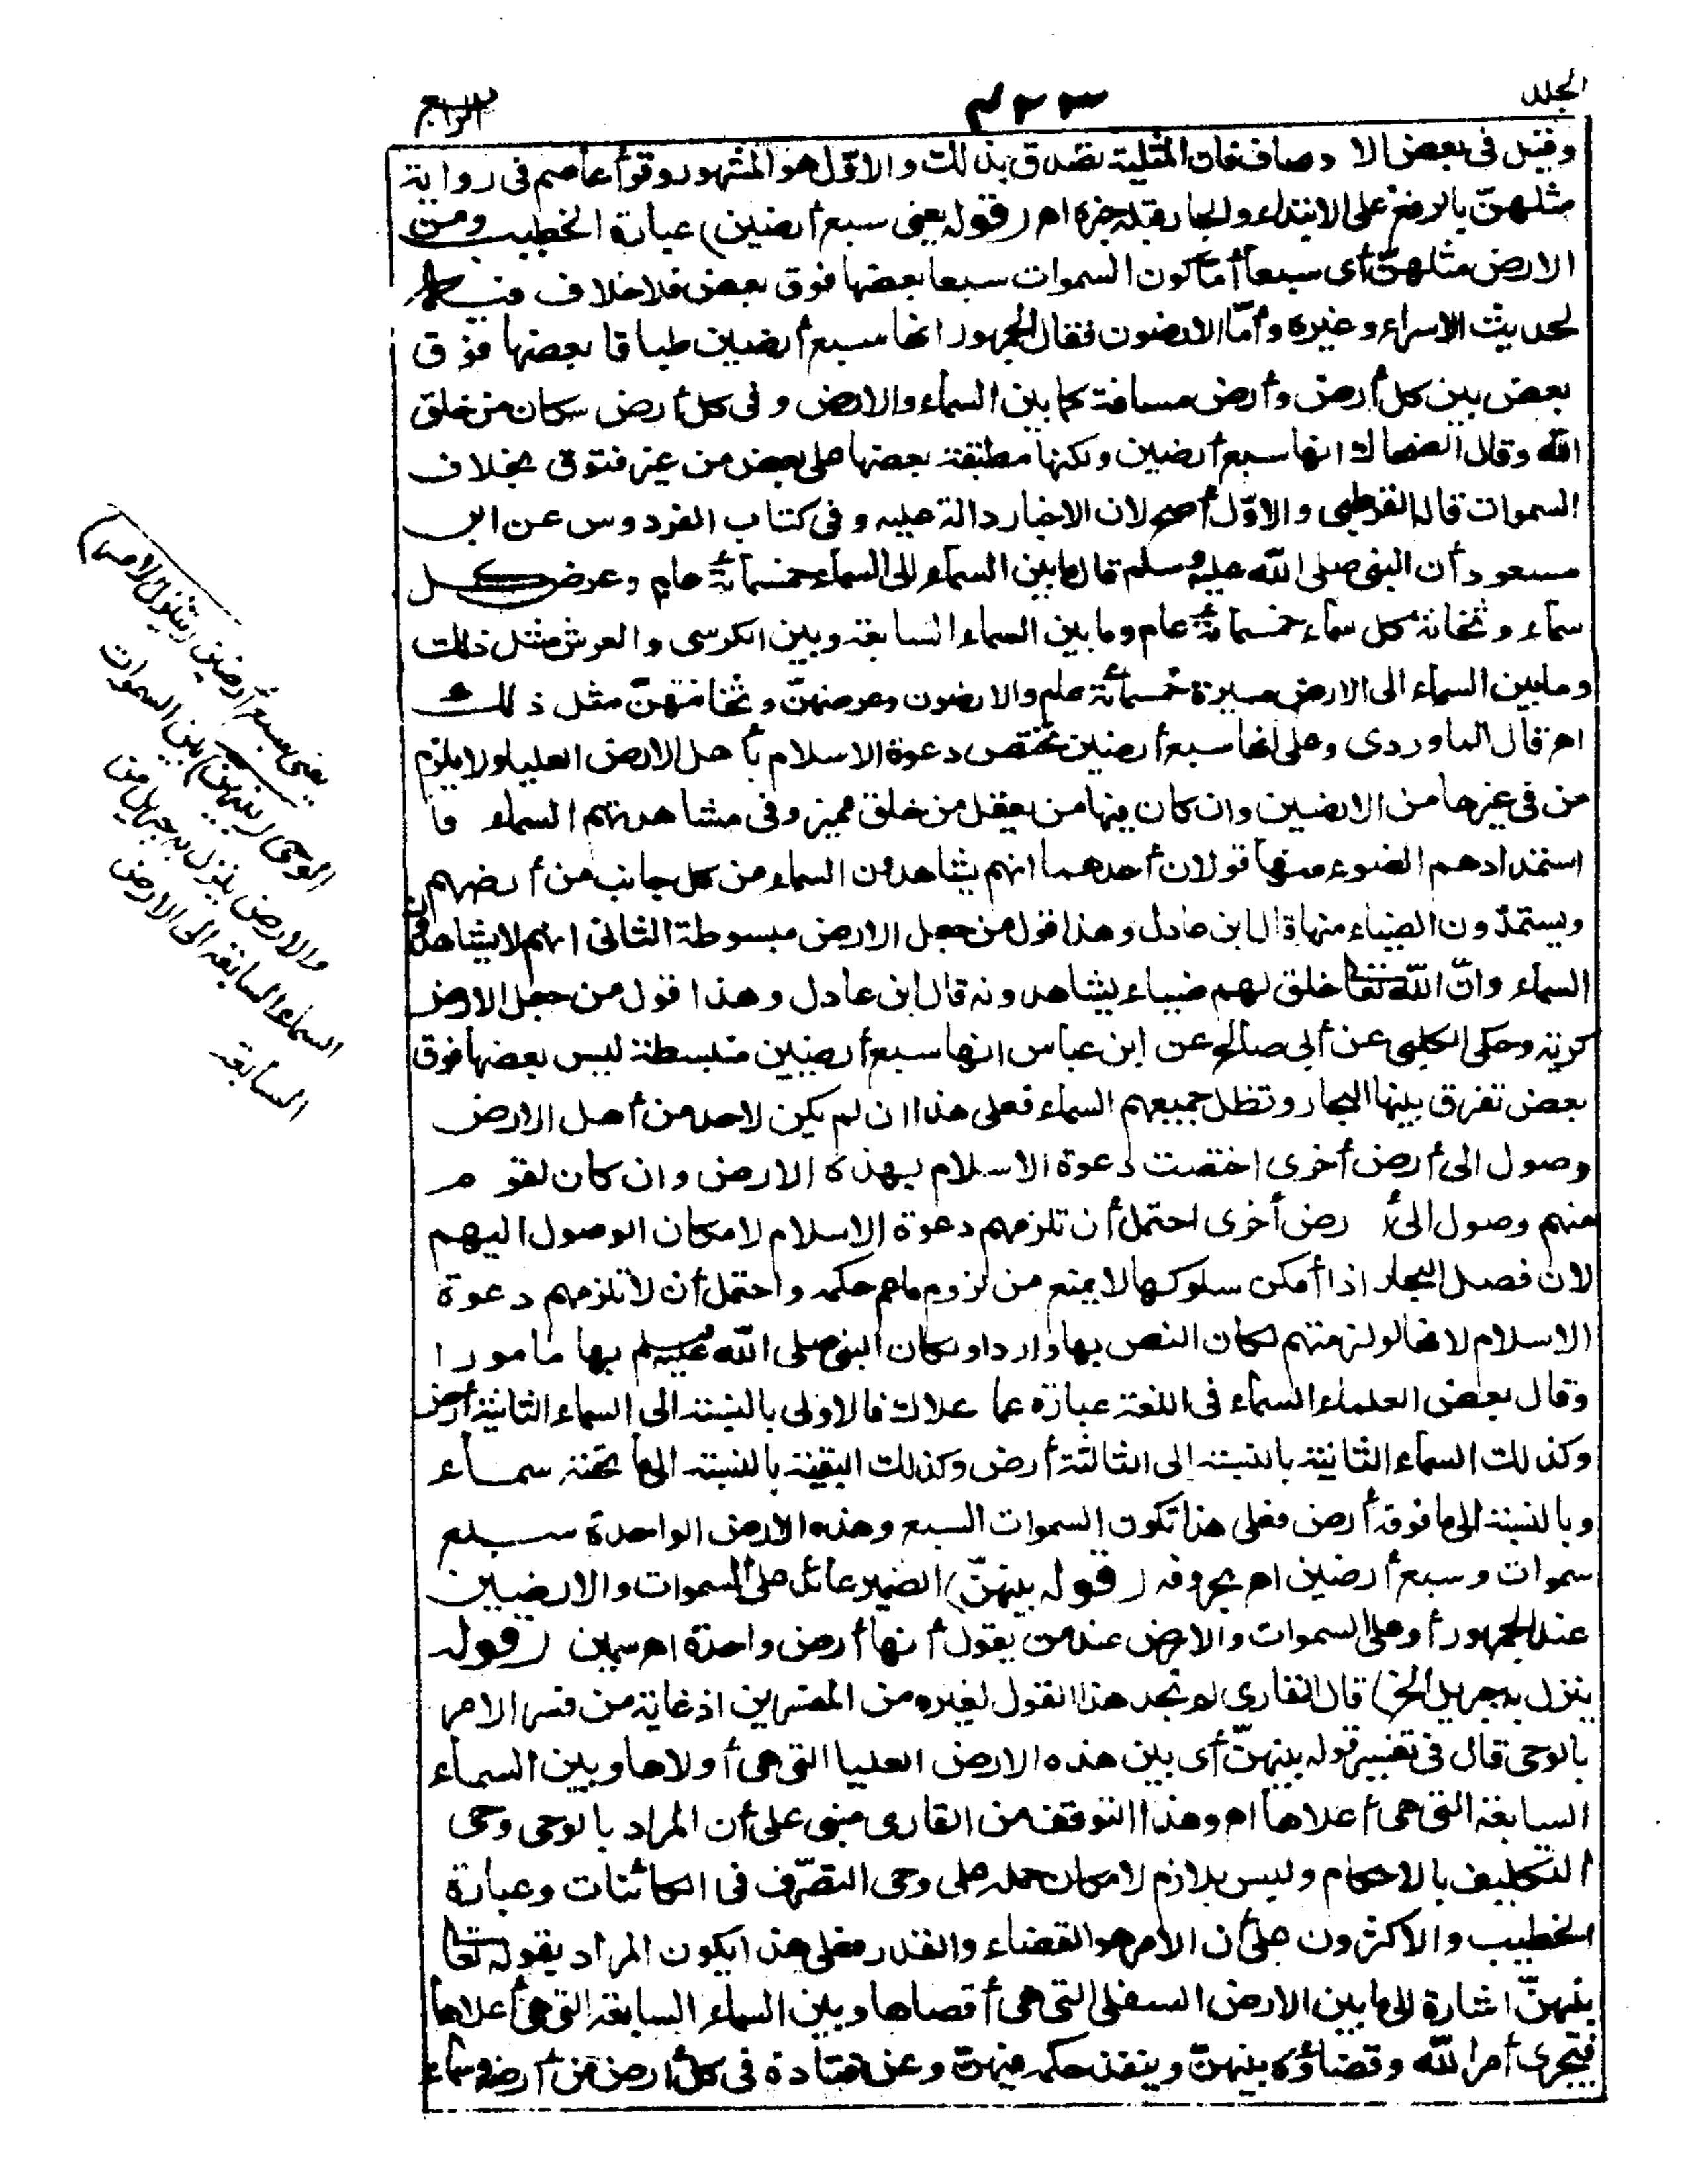 الجلد
٤٢٣
الرابع
وقيل فى بعض الاوصاف فان المثلية تصدق بذلك والاوّل هو المشهور وقرأ عاصم فى رواية
مثلهنّ بالرفع على الابتداء والجار قبله خبره اه (قوله يعنى سبع أرضين) عبارة الخطيب ومن
الارض مثلهنّ أى سبعا أمّا كون السموات سبعا بعضها فوق بعض فلا خلاف فيه
لحديث الاسراء وغيره وأمّا الارضون فقال الجمهور انها سبع أرضين طباقا بعضها فوق
بعض بين كل أرض وأرض مسافة كما بين السماء والارض وفى كل أرض سكان من خلق
الله وقال الضحاك انها سبع أرضين ولكنها مطبقة بعضها على بعض من غير فتوق بخلاف
السموات قال القرطبى والاوّل أصح لان الاخبار دالة عليه وفى كتاب الفردوس عن ابن
مسعود أن النبى صلى الله عليه وسلم قال ما بين السماء الى السماء خمسمائة عام وعرض كل
سماء وثخانة كل سماء خمسمائة عام وما بين السماء السابعة وبين الكرسى والعرش مثل ذلك
وما بين السماء الى الارض مسيرة خمسمائة عام والارضون وعرضهنّ وثخانتهنّ مثل ذلك
اه قال الماوردى وعلى انها سبع أرضين تختص دعوة الاسلام بأهل الارض العليا ولا يلزم
من فى غيرها من الارضين وان كان فيها من يعقل من خلق مميز وفى مشاهدتهم السماء وا
ستمدادهم الضوء منها قولان أحدهما انهم يشاهدون السماء من كل جانب من أرضهم
ويستمدّون الضياء منها قال ابن عادل وهذا قول من جعل الارض مبسوطة الثانى انهم لا يشاهدون
السماء وانّ الله تعالى خلق لهم ضياء يشاهدونه قال ابن عادل وهذا قول من جعل الارض
كرية وحكى الكلبى عن أبى صالح عن ابن عباس انها سبع أرضين منبسطة ليس بعضها فوق
بعض تفرق بينها البحار وتظل جميعهم السماء فعلى هذا ان لم يكن لاحد من أهل الارض
وصول الى أرض أخرى اختصت دعوة الاسلام بهذه الارض وان كان لقوم
منهم وصول الى أرض أخرى احتمل أن تلزمهم دعوة الاسلام لامكان الوصول اليهم
لان فصل البحار اذا أمكن سلوكها لا يمنع من لزوم ما عم حكمه واحتمل أن لا تلزمهم دعوة
الاسلام لانها لو لزمتهم لكان النص بها واردا ولكان النبى صلى الله عليه وسلم بها مأمورا
وقال بعض العلماء السماء فى اللغة عبارة عما علاك فالاولى بالنسبة الى السماء الثانية أرض
وكذلك السماء الثانية بالنسبة إلى الثالثة أرض وكذلك البقية بالنسبة الى ما تحته سماء
وبالنسبة الى ما فوقه أرض فعلى هذا تكون السموات السبع وهذه الارض الواحدة سبع
سموات وسبع أرضين اه بحروفه (قوله بينهنّ) الضمير عائد على السموات والارضين
عند الجمهور أو على السموات والارض عند من يقول أنها أرض واحدة اه سمين (قوله
ينزل به جبريل الخ) قال القارى لم نجد هذا القول لغيره من المفسرين اذ غاية من فسر الامر
بالوحى قال فى تفسير قوله بينهنّ أى بين هذه الارض العليا التى هى أولاها وبين السماء
السابعة التى هى أعلاها اه وهذا التوقف من القارى مبنى على أن المراد بالوحى وحى
التكليف بالاحكام وليس بلازم لامكان حمله على وحى التصرّف فى الكائنات وعبارة
الخطيب والاكثرون على أن الأمر هو القضاء والقدر فعلى هذا يكون المراد بقوله تعالى
بينهنّ اشارة الى ما بين الارض السفلى التى هى أقصاها وبين السماء السابعة التى هى أعلاها
فيجرى أمر الله وقضاؤه بينهنّ وينفذ حكمه فيهنّ وعن قتادة فى كل أرض من أرضه وسماء
يعنى سبع أرضين (يتنزل الامر)
الوحى (بينهن) بين السموات
والارض ينزل به جبريل من
السماء السابعة الى الارض
السابعة